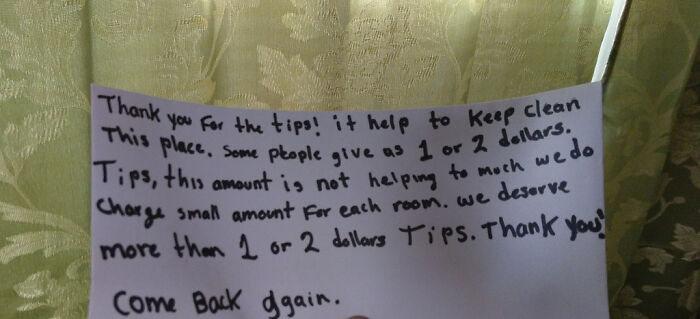 Thank you For the tips! it help to Keep clean
This place. Some people give as 1 or 2 dollars.
Tips, this amount is not helping to much we do
charge small amount For each room. we deserve
more than 1 or 2 dollars Tips. Thank you!
Come Back again.